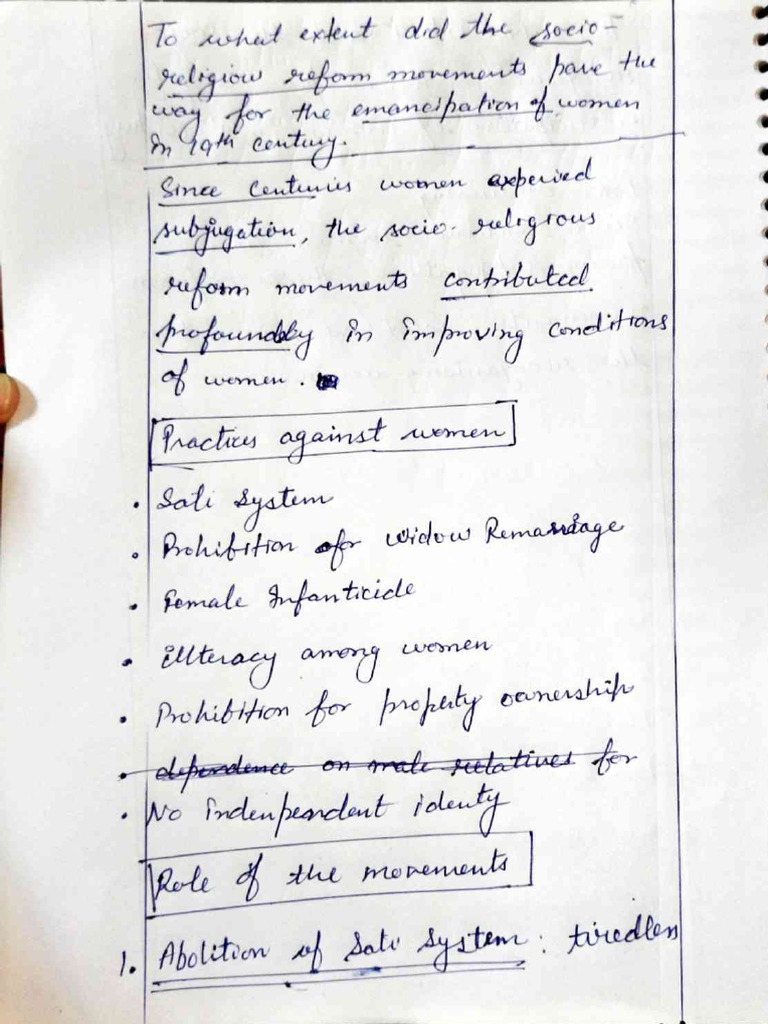 To what extent did the socio-
religious reform movements pave the
way for the emancipation of women
in 19th century.
Since Centuries women experied
subjugation, the socio-religious
reform movements contributed
profoundly in improving conditions
of women.
Practices against women
• Sati System
• Prohibition for widow Remarriage
• Female Infanticide
• illteracy among women
• Prohibition for property ownership
• dependence on male relatives for
• No indenpendent identy
Role of the movements
1. Abolition of Sati System: tiredless